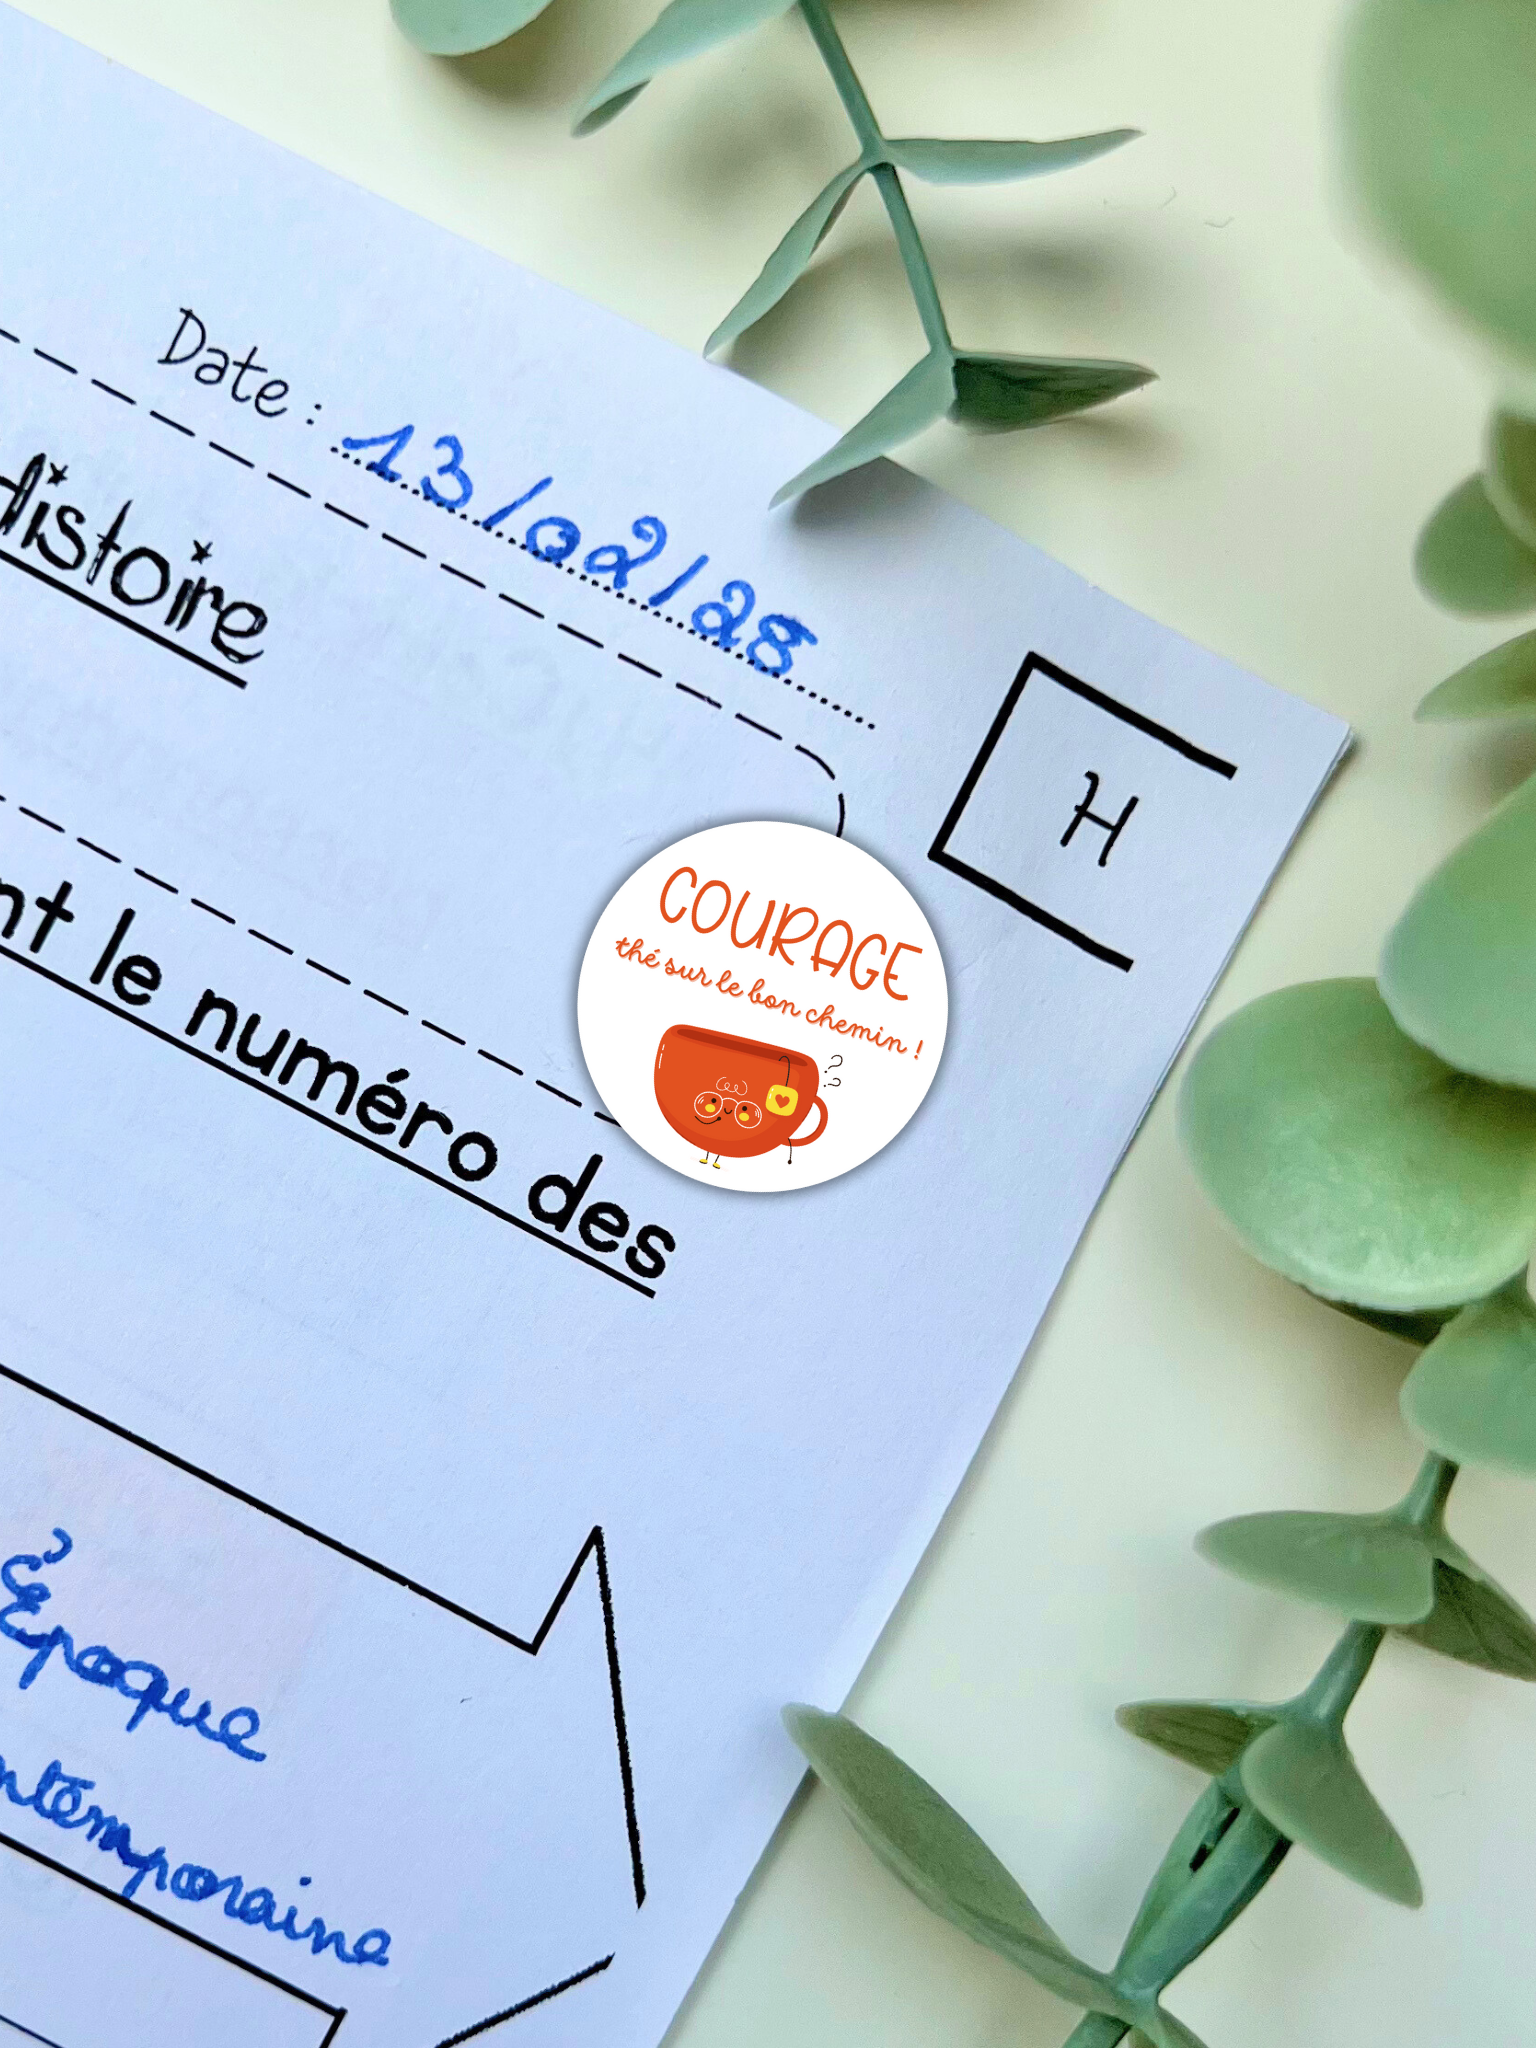 Date : 13/02/28
Histoire
H
COURAGE
thé sur le bon chemin !
le numéro des
Époque